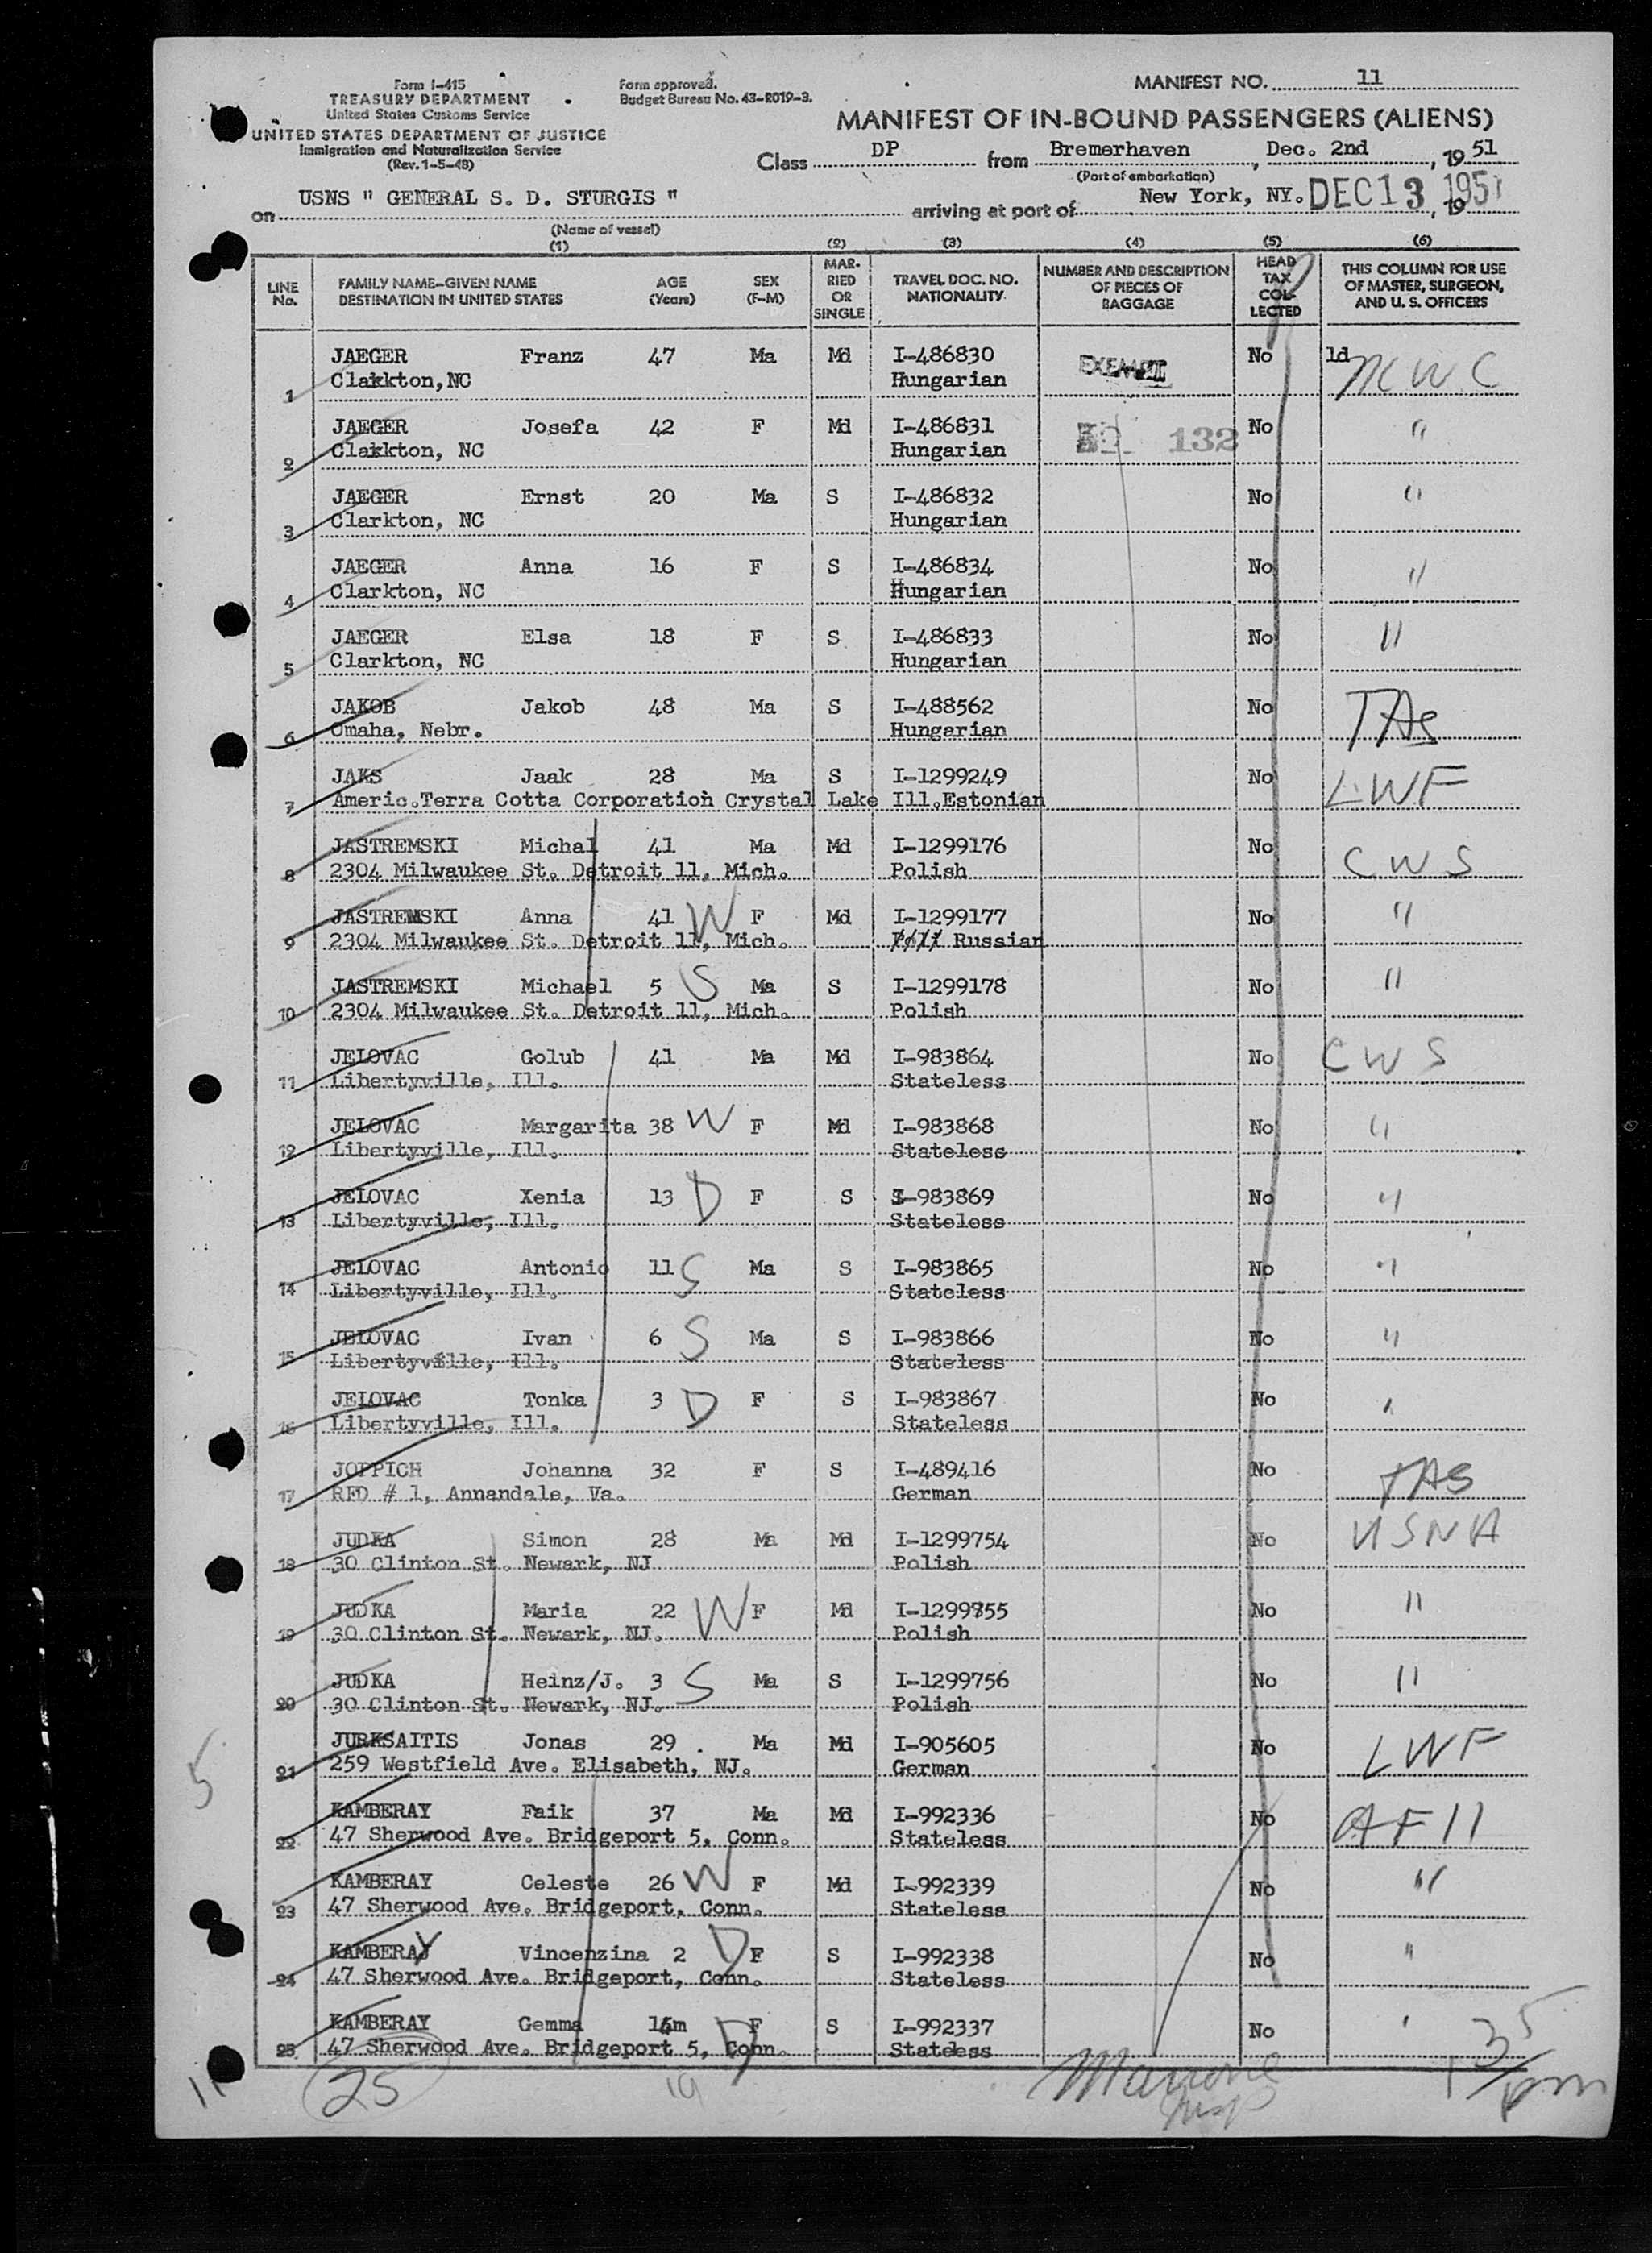 Form I-415
TREASURY DEPARTMENT
United States Customs Service
UNITED STATES DEPARTMENT OF JUSTICE
Immigration and Naturalization Service
(Rev. 1-5-48)
Form approved.
Budget Bureau No. 43-R019-3.
MANIFEST NO. 11
MANIFEST OF IN-BOUND PASSENGERS (ALIENS)
Class DP from Bremerhaven, Dec. 2nd, 19 51
(Port of embarkation)
on USNS " GENERAL S. D. STURGIS " arriving at port of New York, NY. DEC 13 1951, 19
(Name of vessel)
(1) (2) (3) (4) (5) (6)
LINE No. FAMILY NAME-GIVEN NAME DESTINATION IN UNITED STATES AGE (Years) SEX (F-M) MARRIED OR SINGLE TRAVEL DOC. NO. NATIONALITY NUMBER AND DESCRIPTION OF PIECES OF BAGGAGE HEAD TAX COLLECTED THIS COLUMN FOR USE OF MASTER, SURGEON, AND U. S. OFFICERS
JAEGER Franz 47 Ma Md I-486830 EXEMPT No ld NCWC
1 Clakkton,NC Hungarian
JAEGER Josefa 42 F Md I-486831 132 No "
2 Clakkton, NC Hungarian
JAEGER Ernst 20 Ma S I-486832 No "
3 Clarkton, NC Hungarian
JAEGER Anna 16 F S I-486834 No "
4 Clarkton, NC Hungarian
JAEGER Elsa 18 F S I-486833 No "
5 Clarkton, NC Hungarian
JAKOB Jakob 48 Ma S I-488562 No TAS
6 Omaha, Nebr. Hungarian
JAKS Jaak 28 Ma S I-1299249 No LWF
7 Americ.Terra Cotta Corporation Crystal Lake Ill.Estonian
JASTREMSKI Michal 41 Ma Md I-1299176 No CWS
8 2304 Milwaukee St. Detroit 11, Mich. Polish
JASTREMSKI Anna 41 W F Md I-1299177 No "
9 2304 Milwaukee St. Detroit 11, Mich. Russian
JASTREMSKI Michael 5 S Ma S I-1299178 No "
10 2304 Milwaukee St. Detroit 11, Mich. Polish
JELOVAC Golub 41 Ma Md I-983864 No CWS
11 Libertyville, Ill. Stateless
JELOVAC Margarita 38 W F Md I-983868 No "
12 Libertyville, Ill. Stateless
JELOVAC Xenia 13 D F S I-983869 No "
13 Libertyville, Ill. Stateless
JELOVAC Antonio 11 S Ma S I-983865 No "
14 Libertyville, Ill. Stateless
JELOVAC Ivan 6 S Ma S I-983866 No "
15 Libertyville, Ill. Stateless
JELOVAC Tonka 3 D F S I-983867 No "
16 Libertyville, Ill. Stateless
JOPPICH Johanna 32 F S I-489416 No TAS
17 RFD # 1, Annandale, Va. German
JUDKA Simon 28 Ma Md I-1299754 No USNA
18 30 Clinton St. Newark, NJ Polish
JUDKA Maria 22 W F Md I-1299755 No "
19 30 Clinton St. Newark, NJ. Polish
JUDKA Heinz/J. 3 S Ma S I-1299756 No "
20 30 Clinton St. Newark, NJ. Polish
JURKSAITIS Jonas 29 Ma Md I-905605 No LWF
21 259 Westfield Ave. Elisabeth, NJ. German
5
KAMBERAY Faik 37 Ma Md I-992336 No AF11
22 47 Sherwood Ave. Bridgeport 5, Conn. Stateless
KAMBERAY Celeste 26 W F Md I-992339 No "
23 47 Sherwood Ave. Bridgeport, Conn. Stateless
KAMBERAY Vincenzina 2 D F S I-992338 No "
24 47 Sherwood Ave. Bridgeport, Conn. Stateless
KAMBERAY Gemma D F S I-992337 No "
25 47 Sherwood Ave. Bridgeport 5, Conn. Statdess
11 25 19 Insp 135 pm